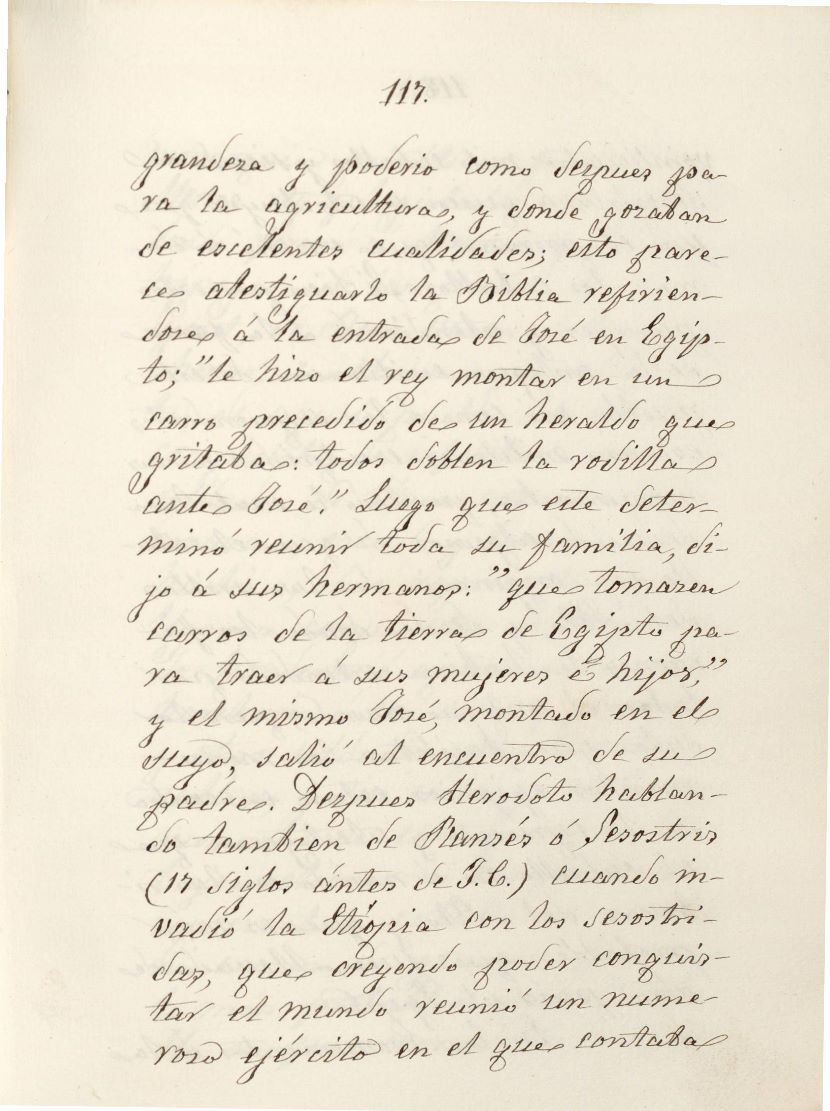 117.
grandeza y poderio como despues pa-
ra la agricultura, y donde gozaban
de escelentes cualidades; esto pare-
ce atestiguarlo la Biblia refirien-
dose á la entrada de José en Egip-
to; "le hizo el rey montar en un
carro precedido de un heraldo que
gritaba: todos doblen la rodilla
ante José." Luego que este deter-
minó reunir toda su familia, di-
jo á sus hermanos: "que tomasen
carros de la tierra de Egipto pa-
ra traer á sus mujeres é hijos,"
y el mismo José, montado en el
suyo, salió al encuentro de su
padre. Despues Herodoto hablan-
do tambien de Ransés ó Sesostris
(17 siglos ántes de J.C.) cuando in-
vadió la Etiópia con los sesostri-
das, que creyendo poder conquis-
tar el mundo reunió un nume-
roso ejército en el que contaba